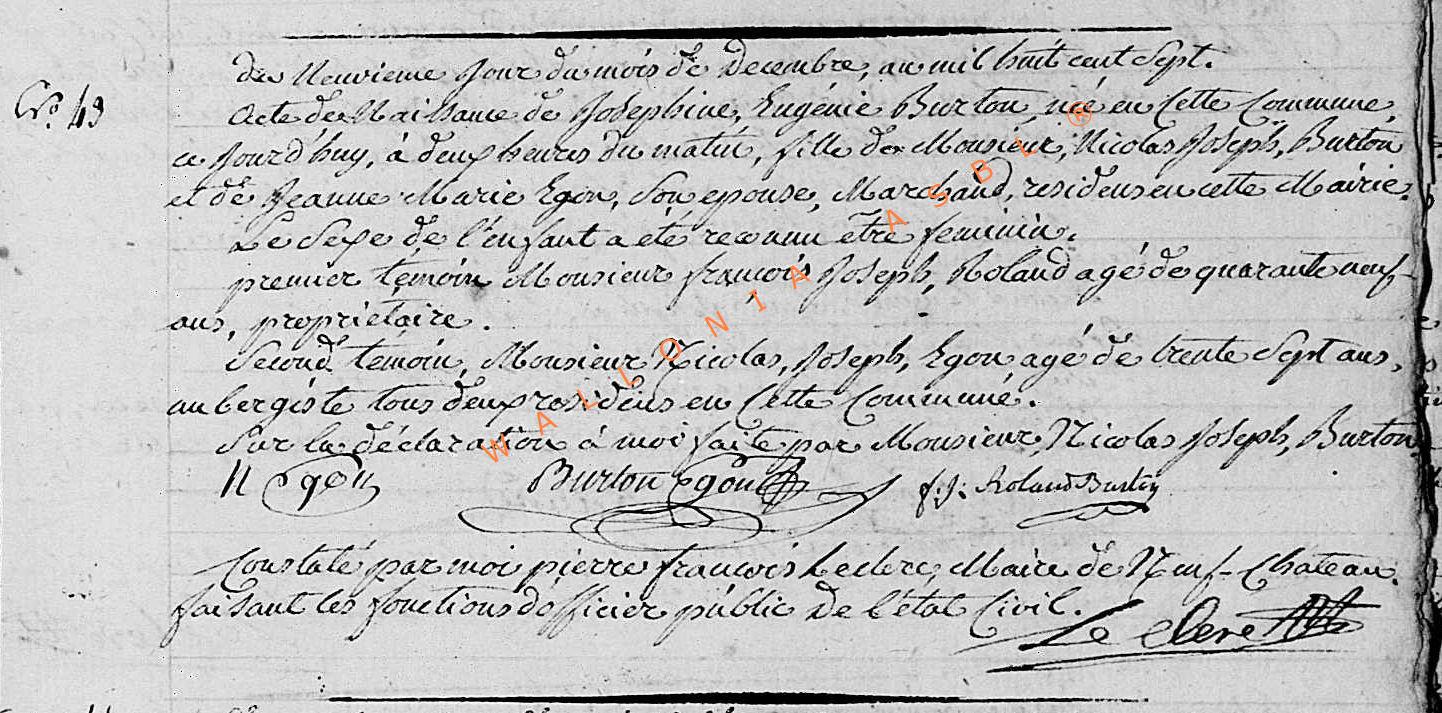 du Neuvieme Jour du mois de Decembre, an mil huit cent Sept.
N.º 49
Acte de Naissance de Josephine, Eugénie Burton, né en Cette Commune,
ce Jourd'huy, à deux heures du matin, fille de Monsieur, Nicolas Joseph, Burton
et de Jeanne Marie Egon, Son epouse, Marchand, residens en cette Mairie.
Le Sexe de l'enfant a été reconnu être feminin.
premier témoin Monsieur françois Joseph, Roland agé de quarante neuf
ans, propriétaire.
Second témoin, Monsieur Nicolas, Joseph, Egon, agé de trente Sept ans,
aubergiste tous deux residens en Cette Commune.
Sur la déclaration à moi faite par Monsieur, Nicolas Joseph, Burton
N Egon Burton Egon f: j: Roland Burton
Constaté par moi pierre françois Leclerc, Maire de Neuf-Chateau.
faisant les fonctions d'officier public de l'état Civil.
Le clerc
WALLONIA ASBL ®